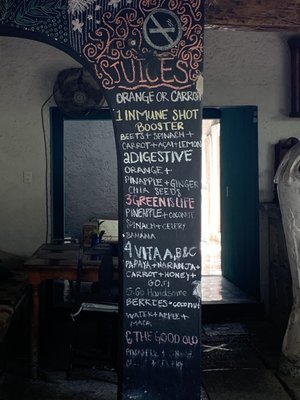 JUICES
ORANGE OR CARROT
1 INMUNE SHOT
BOOSTER
BEETS + SPINACH +
CARROT + AÇAI + LEMON
2 DIGESTIVE
ORANGE +
PINAPPLE + GINGER
CHIA SEEDS
3 GREEN IS LIFE
PINEAPPLE + COCONUT
SPINACH + CELERY
BANANA
4 VITA A, B & C
PAPAYA + NARANJA +
CARROT + HONEY +
GOJI
5 GO Handsome
BERRIES + COCONUT
WATER + APPLE +
MACA
6 THE GOOD OLD